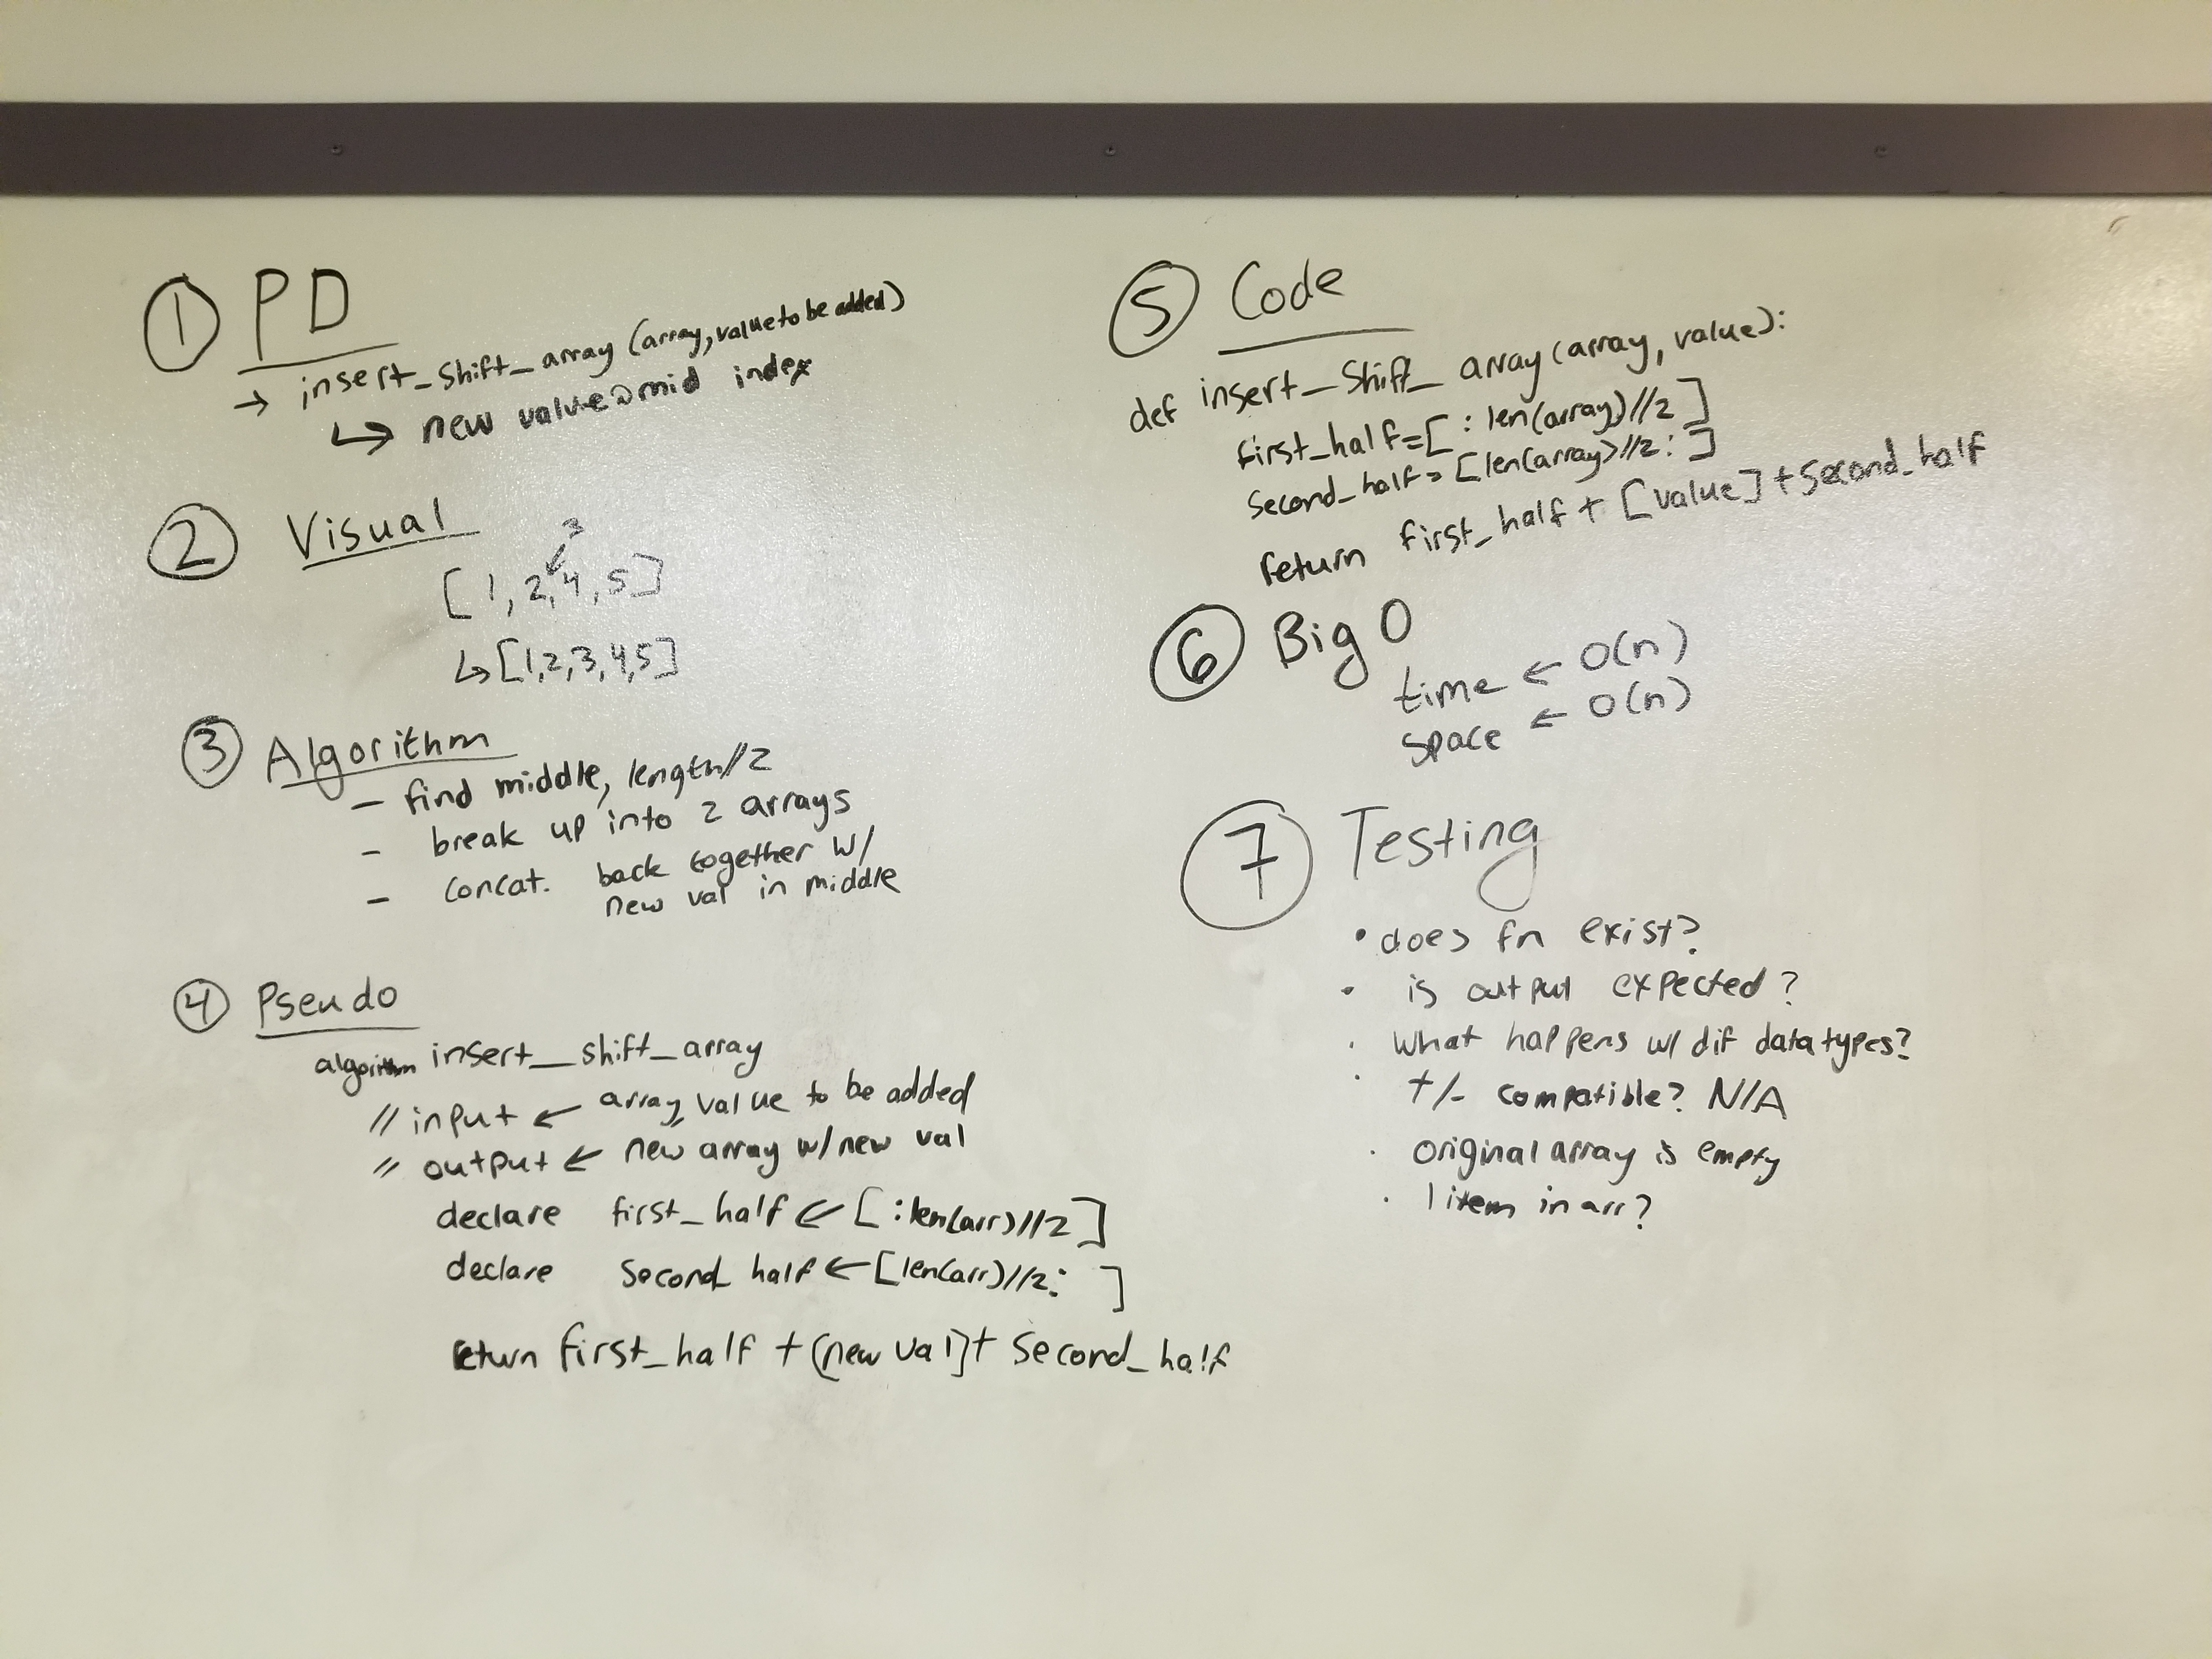 ① PD
→ insert_shift_array (array, value to be added)
↳ new value@mid index
② Visual
3
[1, 2, 4, 5]
↳ [1,2,3,4,5]
③ Algorithm
- find middle, length//2
- break up into 2 arrays
- concat. back together w/
new val in middle
④ Pseudo
algorithm insert_shift_array
// input ← array, value to be added
// output ← new array w/ new val
declare first_half ← [:len(arr)//2]
declare second_half ← [len(arr)//2: ]
return first_half + [new val] + second_half
⑤ Code
def insert_shift_array(array, value):
first_half=[:len(array)//2]
second_half=[len(array)//2:]
return first_half + [value] + second_half
⑥ Big O
time ← O(n)
space ← O(n)
⑦ Testing
• does fn exist?
• is output expected?
• what happens w/ dif datatypes?
• +/- compatible? N/A
• original array is empty
• 1 item in arr?